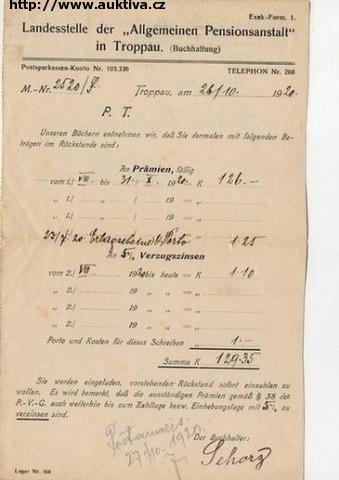 http://www.auktiva.cz
Exek-Form. 1.
Landesstelle der „Allgemeinen Pensionsanstalt"
in Troppau. (Buchhaltung)
Postsparkassen-Konto Nr. 103.336 TELEPHON Nr. 266
M.-Nr. 2520/ Troppau, am 26/10. 1920.
P. T.
Unseren Büchern entnehmen wir, daß Sie dermalen mit folgenden Be-
trägen im Rückstande sind:
An Prämien, fällig
vom 1./ VIII. bis 31. X. 1920. K 126.–
„ 1./ „ 19 „ „
„ 1./ „ 19 „ „
23/ 20 Porto 1.25
An 5% Verzugszinsen
vom 2./ VIII 1920 bis heute = K 1.10
„ 2./ 19 „ „ = „
„ 2./ 19 „ „ = „
„ 2./ 19 „ „ = „
Porto und Kosten für dieses Schreiben „ 1.–
Summa K 129.35
Sie werden eingeladen, vorstehenden Rückstand sofort einzahlen zu
wollen. Es wird bemerkt, daß die ausständigen Prämien gemäß § 38 des
P.-V.-G. auch weiterhin bis zum Zahltage bezw. Einhebungstage mit 5% zu
verzinsen sind.
1920
27/10.
Der Buchhalter:
Schorz
Lager Nr. 468